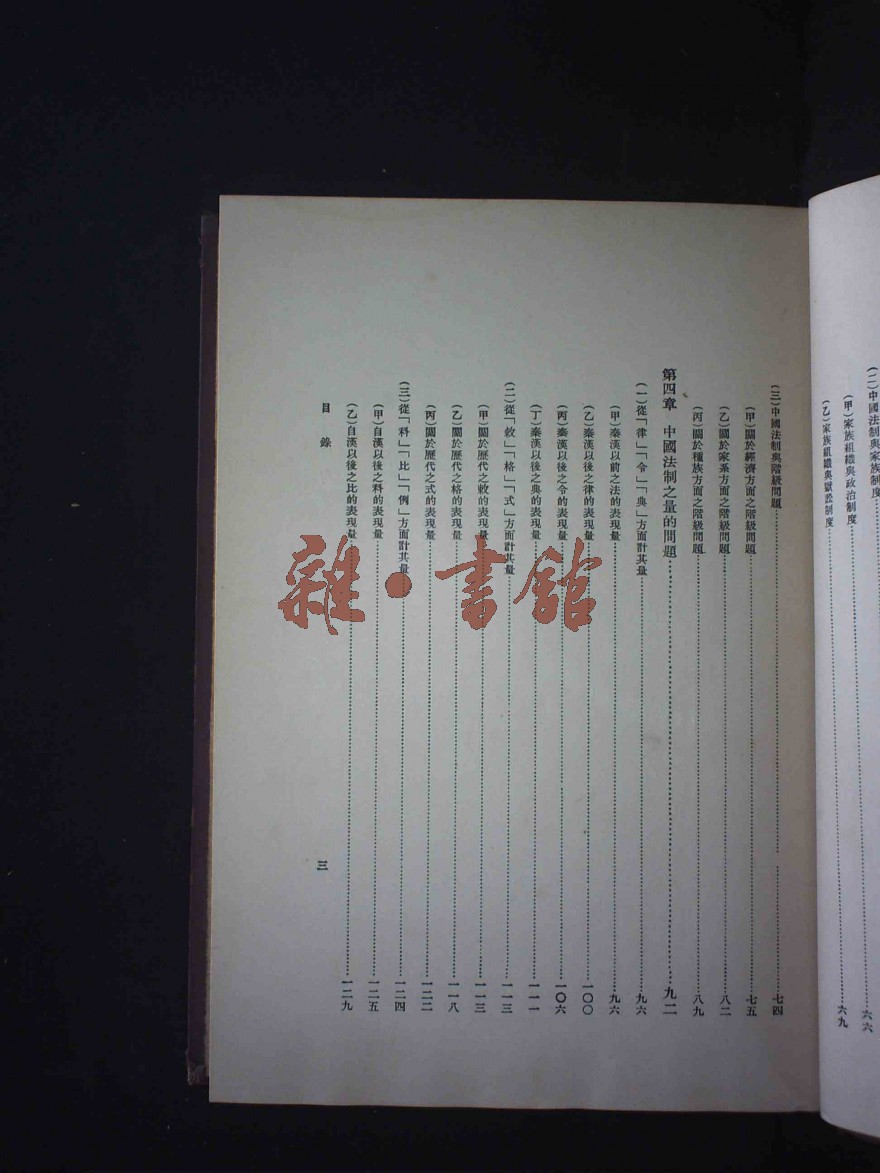 (二)中國法制與家族制度……六六
(甲)家族組織與政治制度……六九
(乙)家族組織與獄訟制度
(三)中國法制與階級問題……七四
(甲)關於經濟方面之階級問題……七五
(乙)關於家系方面之階級問題……八二
(丙)關於種族方面之階級問題……八九
第四章 中國法制之量的問題……九二
(一)從「律」「令」「典」方面計其量……九六
(甲)秦漢以前之法的表現量……九六
(乙)秦漢以後之律的表現量……一〇〇
(丙)秦漢以後之令的表現量……一〇六
(丁)秦漢以後之典的表現量……一一一
(二)從「敕」「格」「式」方面計其量……一一三
(甲)關於歷代之敕的表現量……一一三
(乙)關於歷代之格的表現量……一一八
(丙)關於歷代之式的表現量……一二二
(三)從「科」「比」「例」方面計其量……一二四
(甲)自漢以後之科的表現量……一二五
(乙)自漢以後之比的表現量……一二九
目錄
三
雜·書館